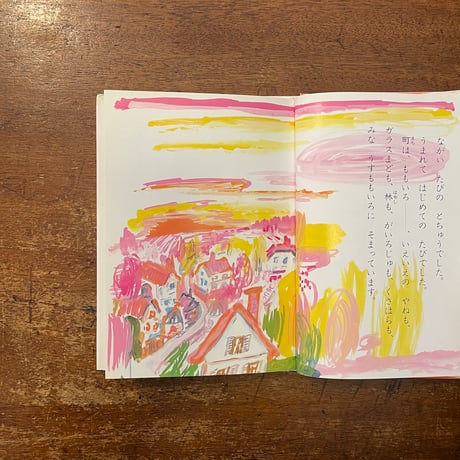 ながい たびの とちゅうでした。
うまれて はじめての たびでした。
町は、ももいろ——、いえいえの やねも、
ガラスまども、林も、がいろじゅも、くさはらも、
みな うすももいろに そまっています。